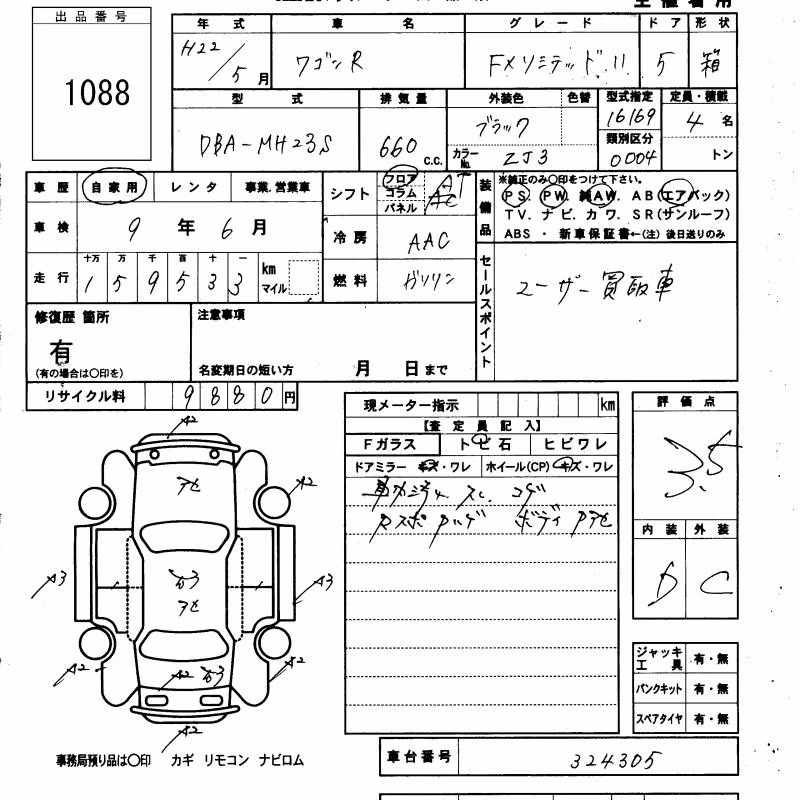 出品番号
1088
年式 車名 グレード ドア 形状
H22/5月 ワゴンR FXリミテッドII 5 箱
型式 排気量 外装色 色替 型式指定 定員・積載
DBA-MH23S 660 c.c. ブラック 16169 4名
カラーNo. ZJ3 類別区分 0004 トン
車歴 自家用 レンタ 事業.営業車 シフト フロア コラム パネル AT
装備品 ※純正のみ〇印をつけて下さい。
PS. PW. 純AW. AB(エアバック)
TV. ナビ. カワ. SR(サンルーフ)
ABS ・ 新車保証書←(注) 後日送りのみ
車検 9年6月 冷房 AAC
十万 万 千 百 十 一
走行 159533 km マイル 燃料 ガソリン
セールスポイント ユーザー買取車
修復歴 箇所 注意事項
有
(有の場合は〇印を) 名変期日の短い方 月 日まで
リサイクル料 9880円
現メーター指示 km 評価点
【査定員記入】
Fガラス トビ石 ヒビワレ 3.5
ドアミラー キズ・ワレ ホイール(CP) キズ・ワレ
コゲ
ボディ
内装 外装
D C
A2
アセ
A2
A3 A3
アセ
A2 A2
A2
A2
ジャッキ工具 有・無
パンクキット 有・無
スペアタイヤ 有・無
事務局預り品は〇印 カギ リモコン ナビロム
車台番号 324305